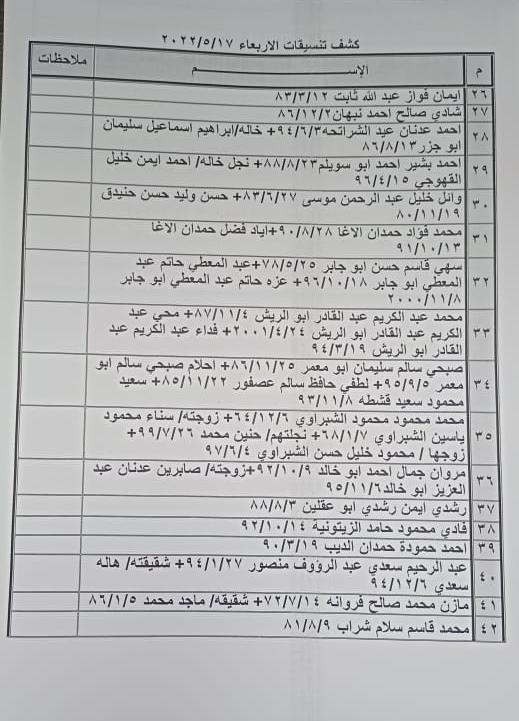 كشف تنسيقات الاربعاء ٢٠٢٢/٥/١٧
م الإســم ملاحظات
٢٦ ايمان فواز عبد الله ثابت ٨٣/٣/١٢
٢٧ شادي صالح احمد نبهان ٨٦/١٢/٢
٢٨ احمد عدنان عيد الشراتحه ٩٤/٦/٣+ خاله/ابراهيم اسماعيل سليمان
ابو جزر ٨٦/٨/١٣
٢٩ احمد بشير احمد ابو سويلم ٨٨/٨/٢٣+ نجل خاله/ احمد ايمن خليل
القهوجي ٩٦/٤/١٥
٣٠ وائل خليل عبد الرحمن موسى ٨٣/٦/٢٧+ حسن وليد حسن حنيدق
٨٠/١١/١٩
٣١ محمد فؤاد حمدان الاغا ٩٠/٨/٢٨+اياد فضل حمدان الاغا
٩١/١٠/١٣
٣٢ سهي قاسم حسن ابو جابر ٧٨/٥/٢٥+عبد المعطي حاتم عبد
المعطي ابو جابر ٩٦/١٠/١٨+ عزه حاتم عبد المعطي ابو جابر
٢٠٠٠/١١/٨
٣٣ محمد عبد الكريم عبد القادر ابو الريش ٨٧/١١/٤+ محي عبد
الكريم عبد القادر ابو الريش ٢٠٠١/٤/٢٤+ فداء عبد الكريم عبد
القادر ابو الريش ٩٤/٣/١٩
٣٤ صبحي سالم سليمان ابو معمر ٨٦/١١/٢٥+ احلام صبحي سالم ابو
معمر ٩٥/٩/٥+ لطفي حافظ سالم عصفور ٨٥/١١/٢٢+ سعيد
محمود سعيد قشطه ٩٣/١١/٨
٣٥ محمد محمود محمود الشبراوي ٦٤/١٢/٦+ زوجته/ سناء محمود
ياسين الشبراوي ٦٨/١/٧+ نجلتهم/ حنين محمد ٩٩/٧/٢٦+
زوجها / محمود خليل حسن الشبراوي ٩٧/٦/٤
٣٦ مروان جمال احمد ابو خالد ٩٢/١٠/٩+زوجته/ صابرين عدنان عبد
العزيز ابو خالد ٩٥/١١/٦
٣٧ رشدي ايمن رشدي ابو عقلين ٨٨/٨/٣
٣٨ فادي محمود حامد الزيتونية ٩٢/١٠/١٤
٣٩ احمد حمودة حمدان الديب ٩٠/٣/١٩
٤٠ عبد الرحيم سعدي عبد الرؤوف منصور ٩٤/١/٢٧+ شقيقته/ هاله
سعدي ٩٤/١٢/٦
٤١ مازن محمد صالح فروانه ٧٢/٧/١٤+ شقيقه/ ماجد محمد ٨٦/١/٥
٤٢ محمد قاسم سلام شراب ٨١/٨/٩